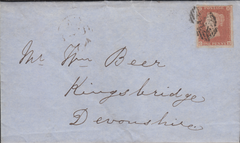 Mr. Wm Beer
Kingsbridge
Devonshire